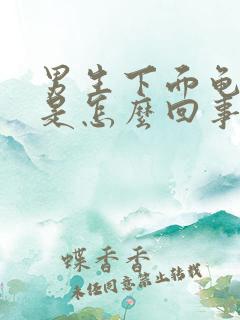 男生下面龟
是怎麼回事
蝶香香
未经同意禁止转载